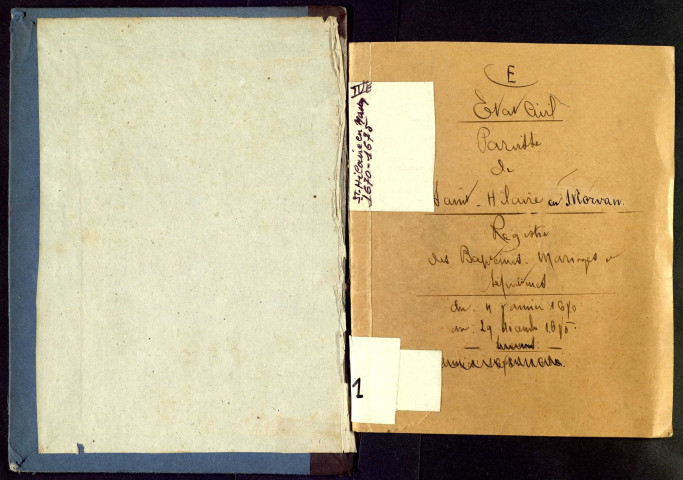 St Hilaire en Morvan
1670-1675
1
E
Etat Civil
Paroisse
de
Saint-Hilaire en Morvan
Registre
des Baptêmes. Mariages et
sépultures
du 4 janvier 1670
au 29 décembre 1675.